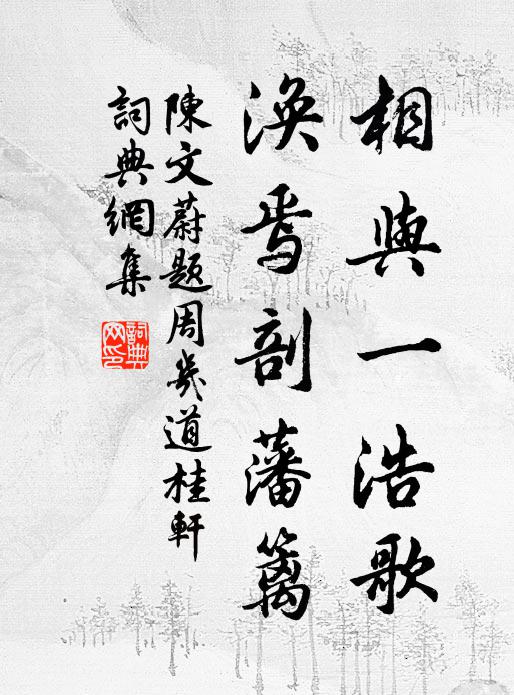 相與一浩歌
渙焉剖藩籬
陳文蔚題周幾道桂軒
詞典網集
詞典網印